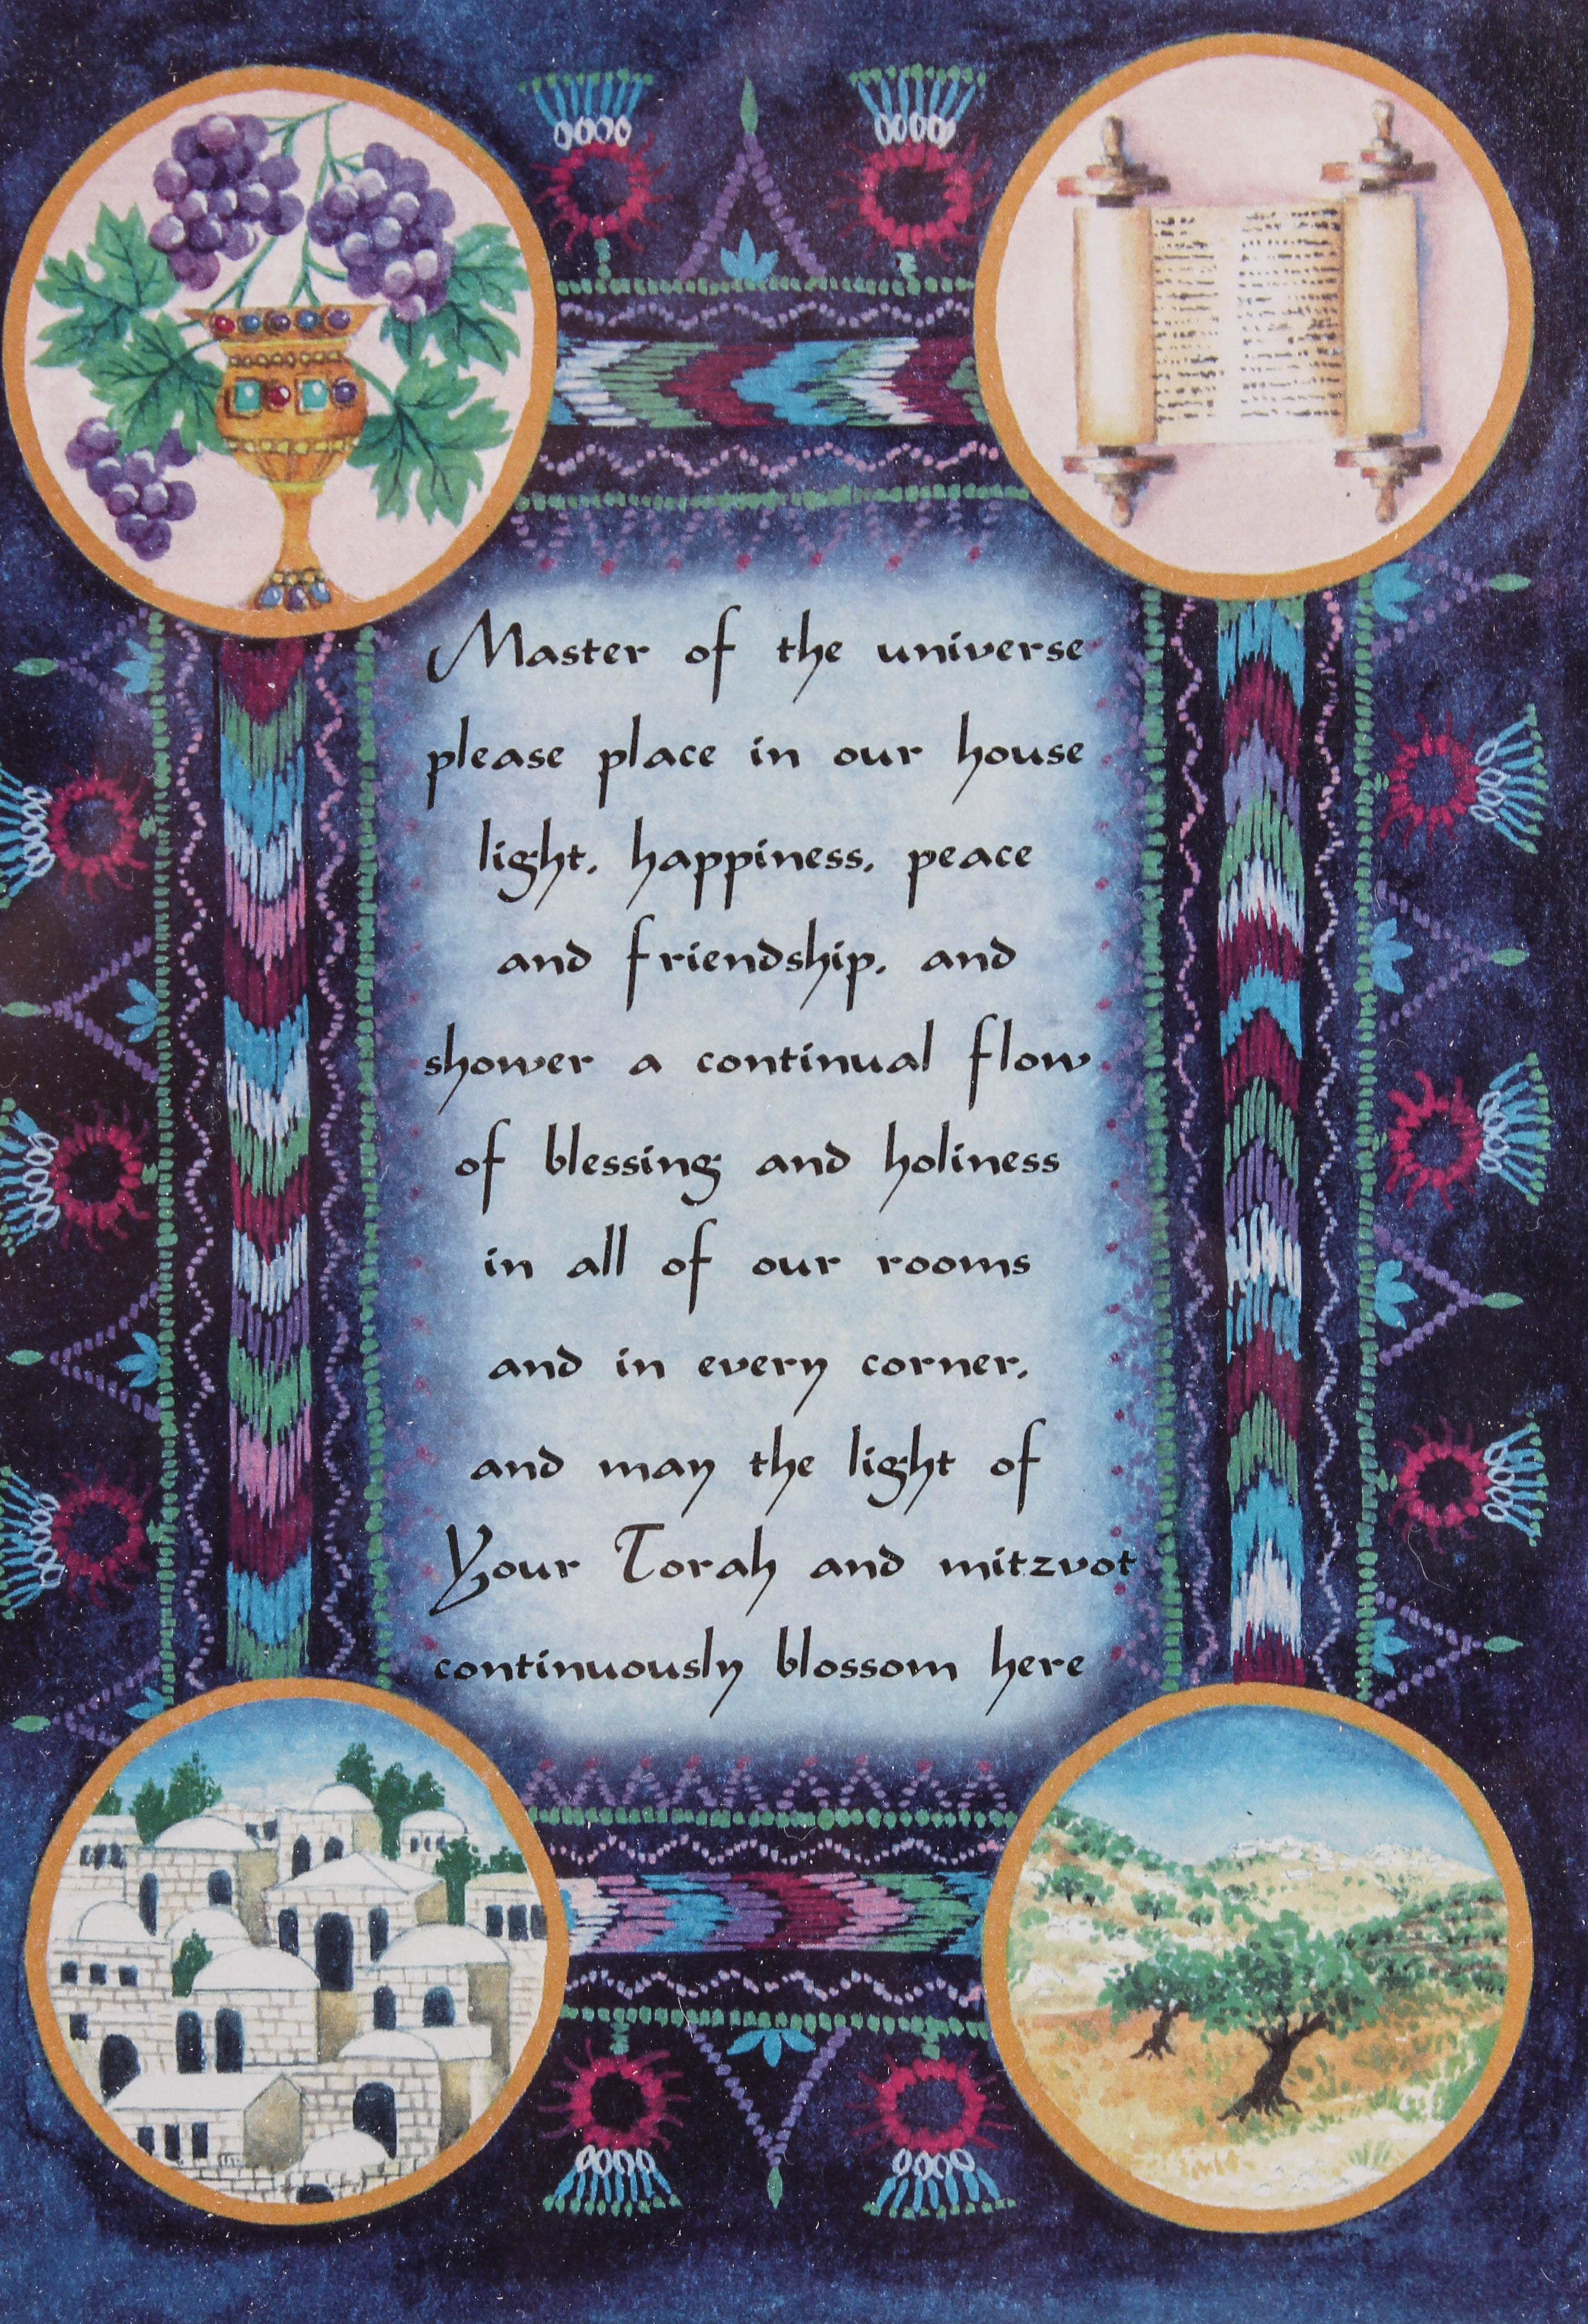 Master of the universe
please place in our house
light, happiness, peace
and friendship, and
shower a continual flow
of blessing and holiness
in all of our rooms
and in every corner,
and may the light of
Your Torah and mitzvot
continuously blossom here